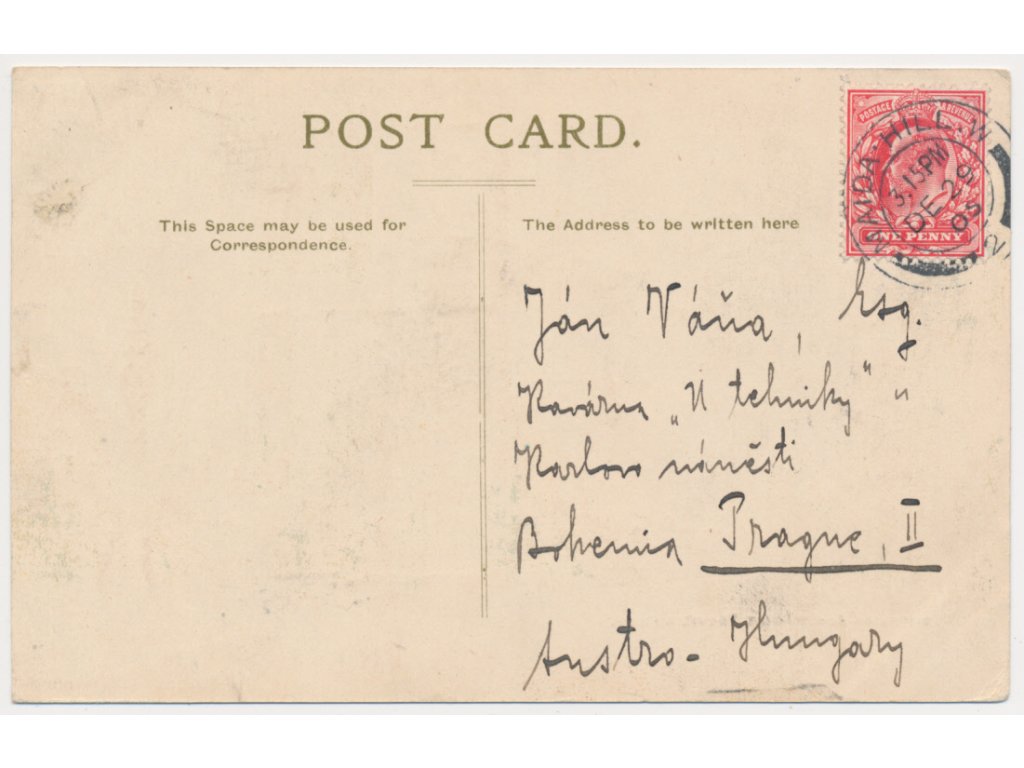 POST CARD.
This Space may be used for
Correspondence.
The Address to be written here
POSTAGE REVENUE
ONE PENNY
MAIDA HILL. W
3.15 PM
DE 29
05
2
Ján Váňa, Esq.
Kavárna „U techniky" "
Karlovo náměstí
Bohemia Prague, II
Austro-Hungary